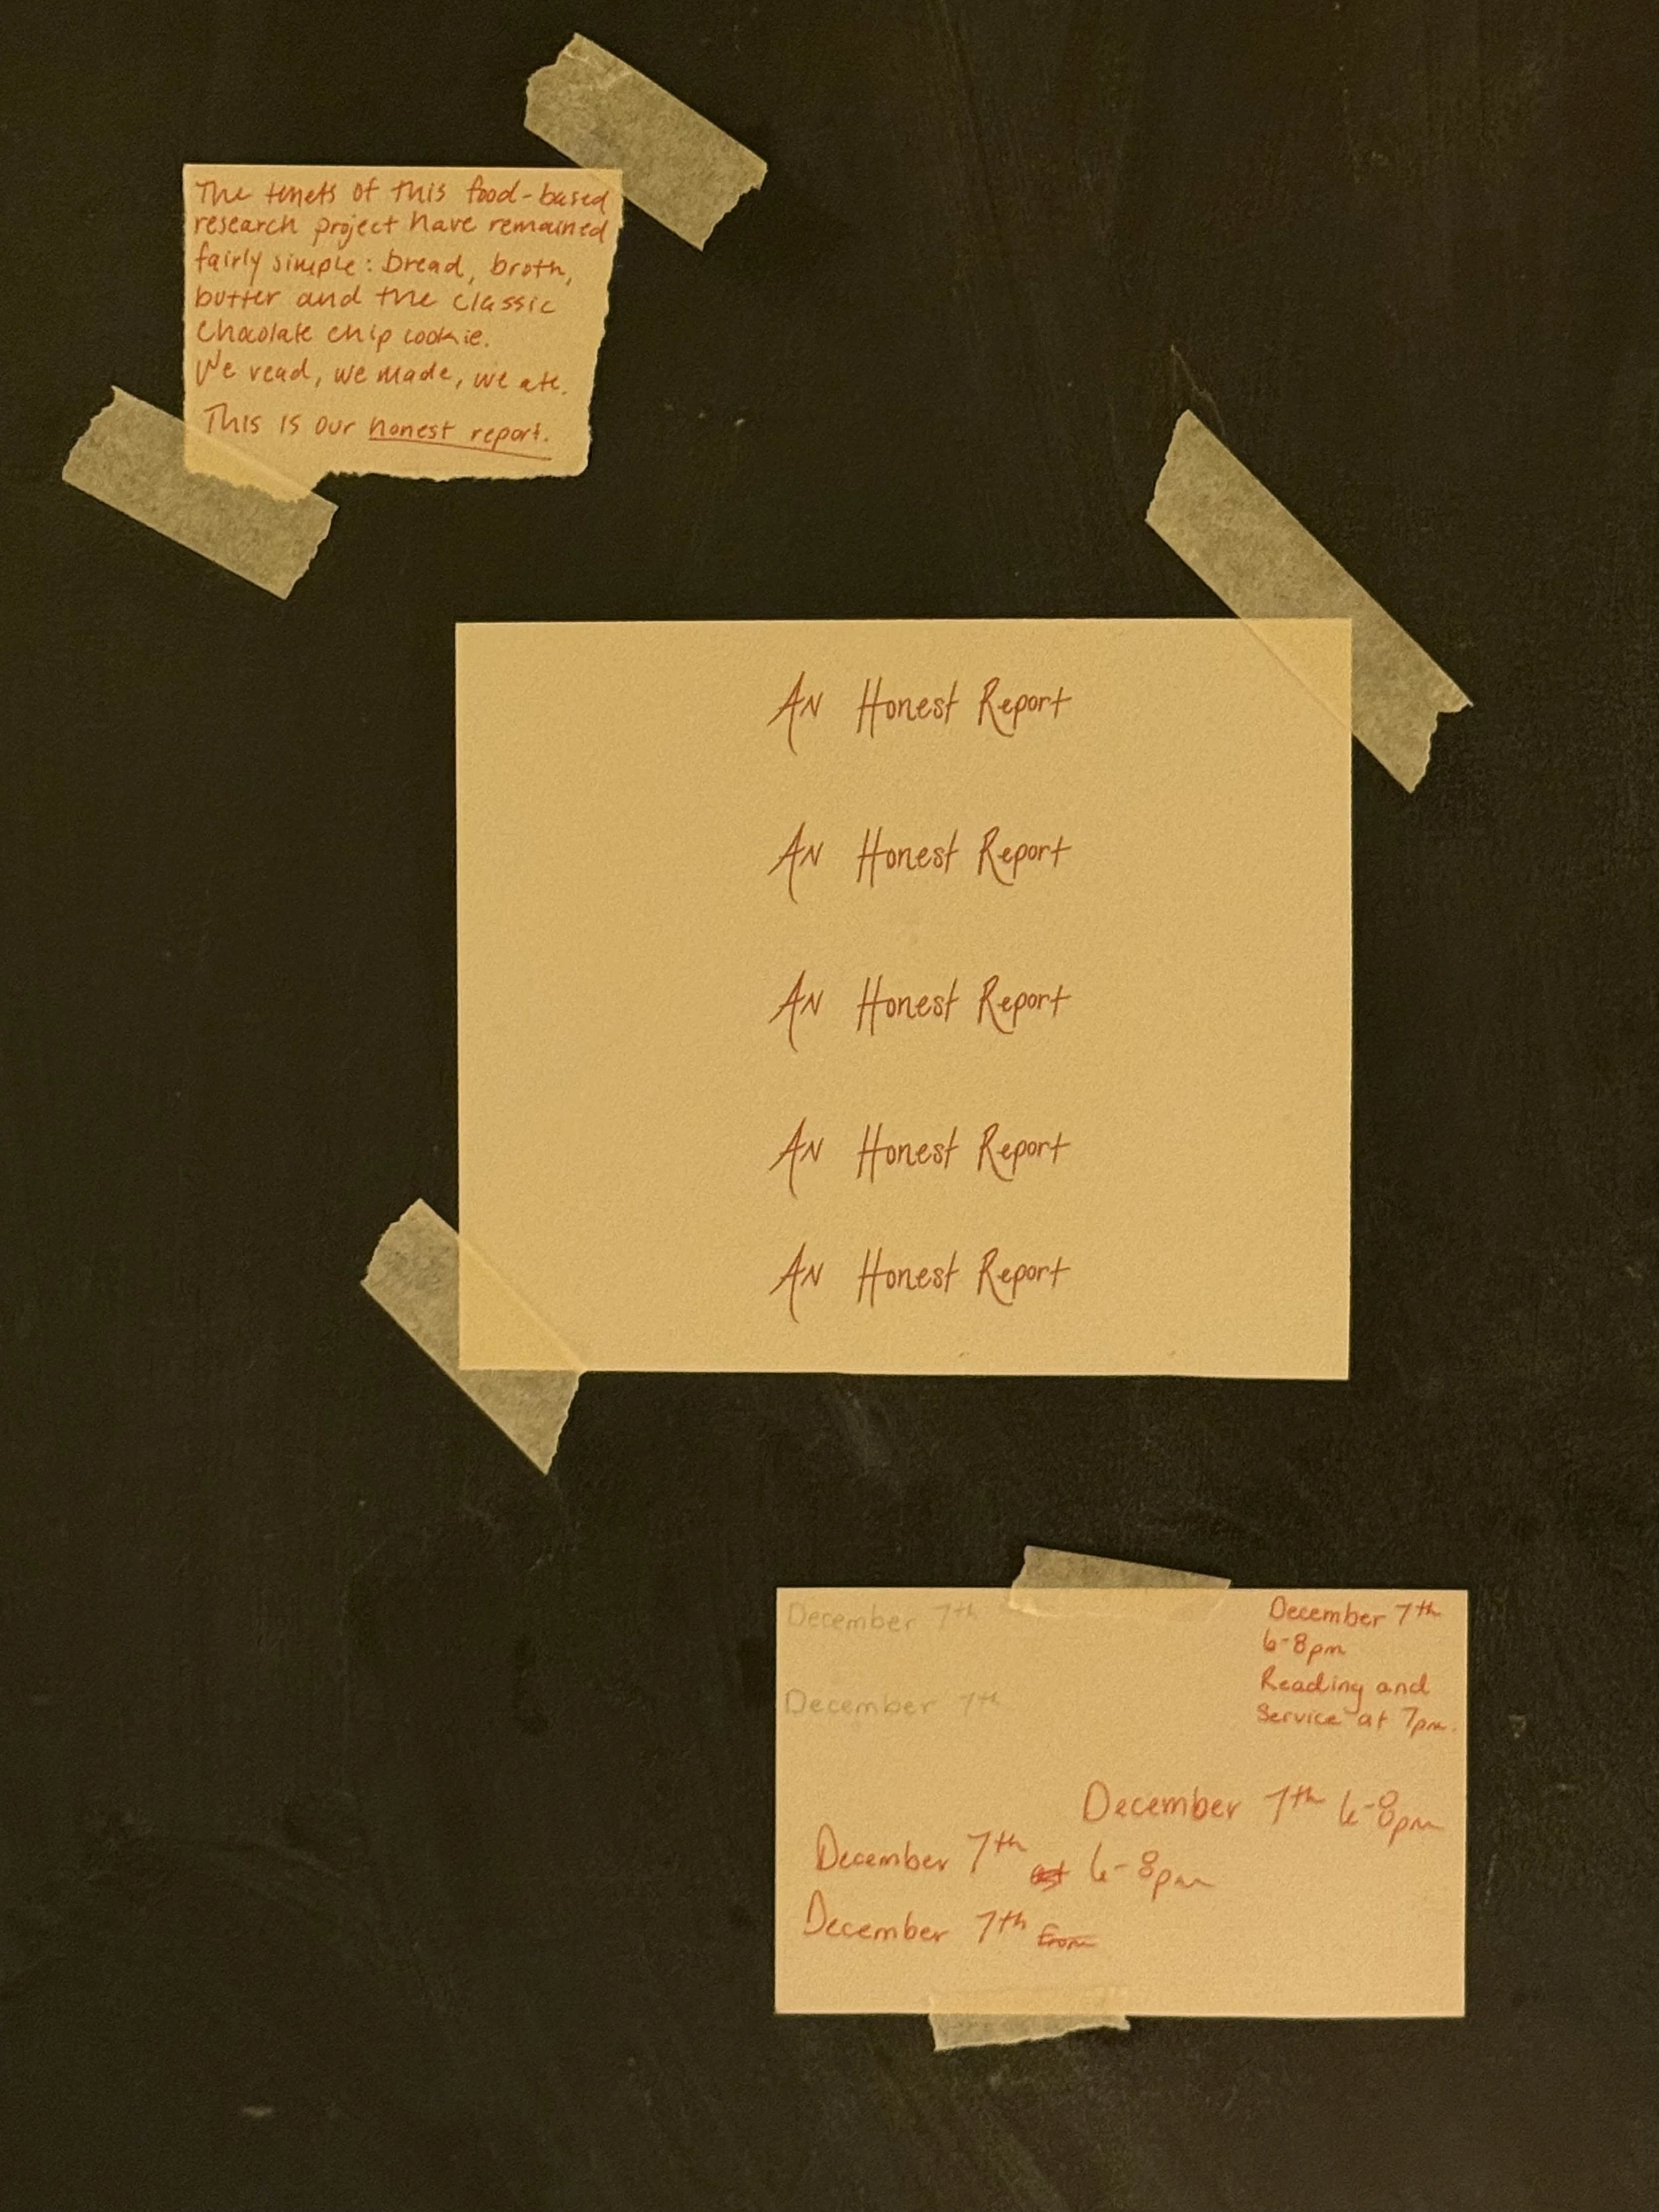 The tenets of this food-based
research project have remained
fairly simple: bread, broth,
butter and the classic
chocolate chip cookie.
We read, we made, we ate.
This is our honest report.
An Honest Report
An Honest Report
An Honest Report
An Honest Report
An Honest Report
December 7th
December 7th
December 7th
6-8pm
Reading and
Service at 7pm.
December 7th 6-8pm
December 7th at 6-8pm
December 7th From